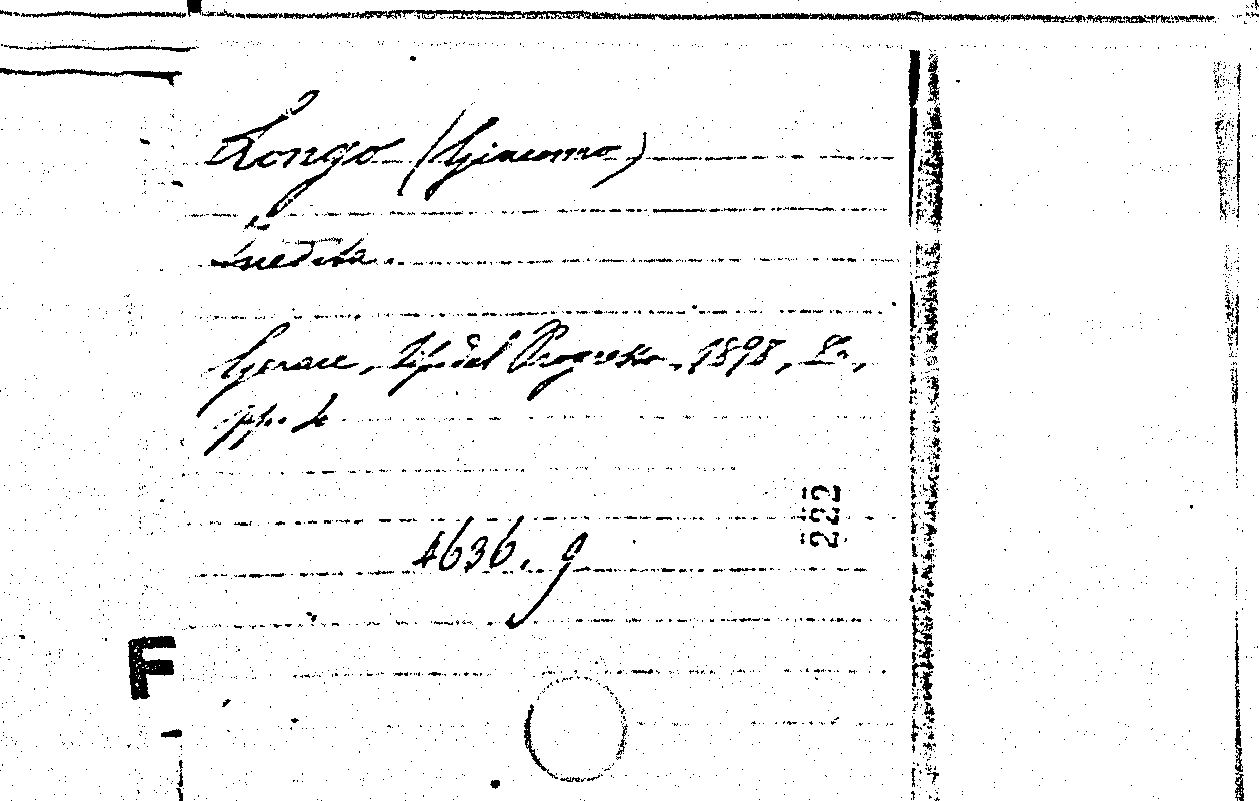 Longo (Giacomo)
Inedita.
Gerace, Tip. del Progresso, 1898, 8º,
pp. 4
222
4636. g
F